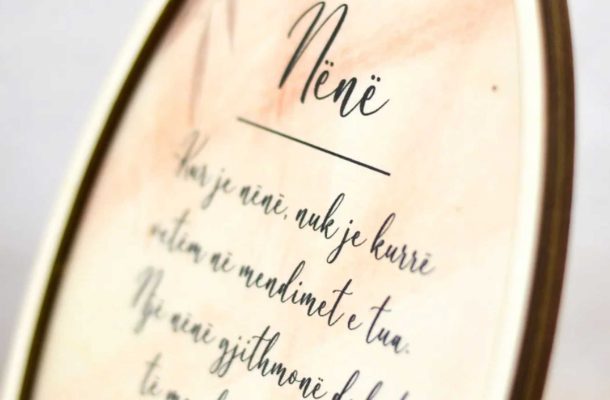 Nënë
Kur je nënë, nuk je kurrë
vetëm në mendimet e tua.
Një nënë gjithmonë
të